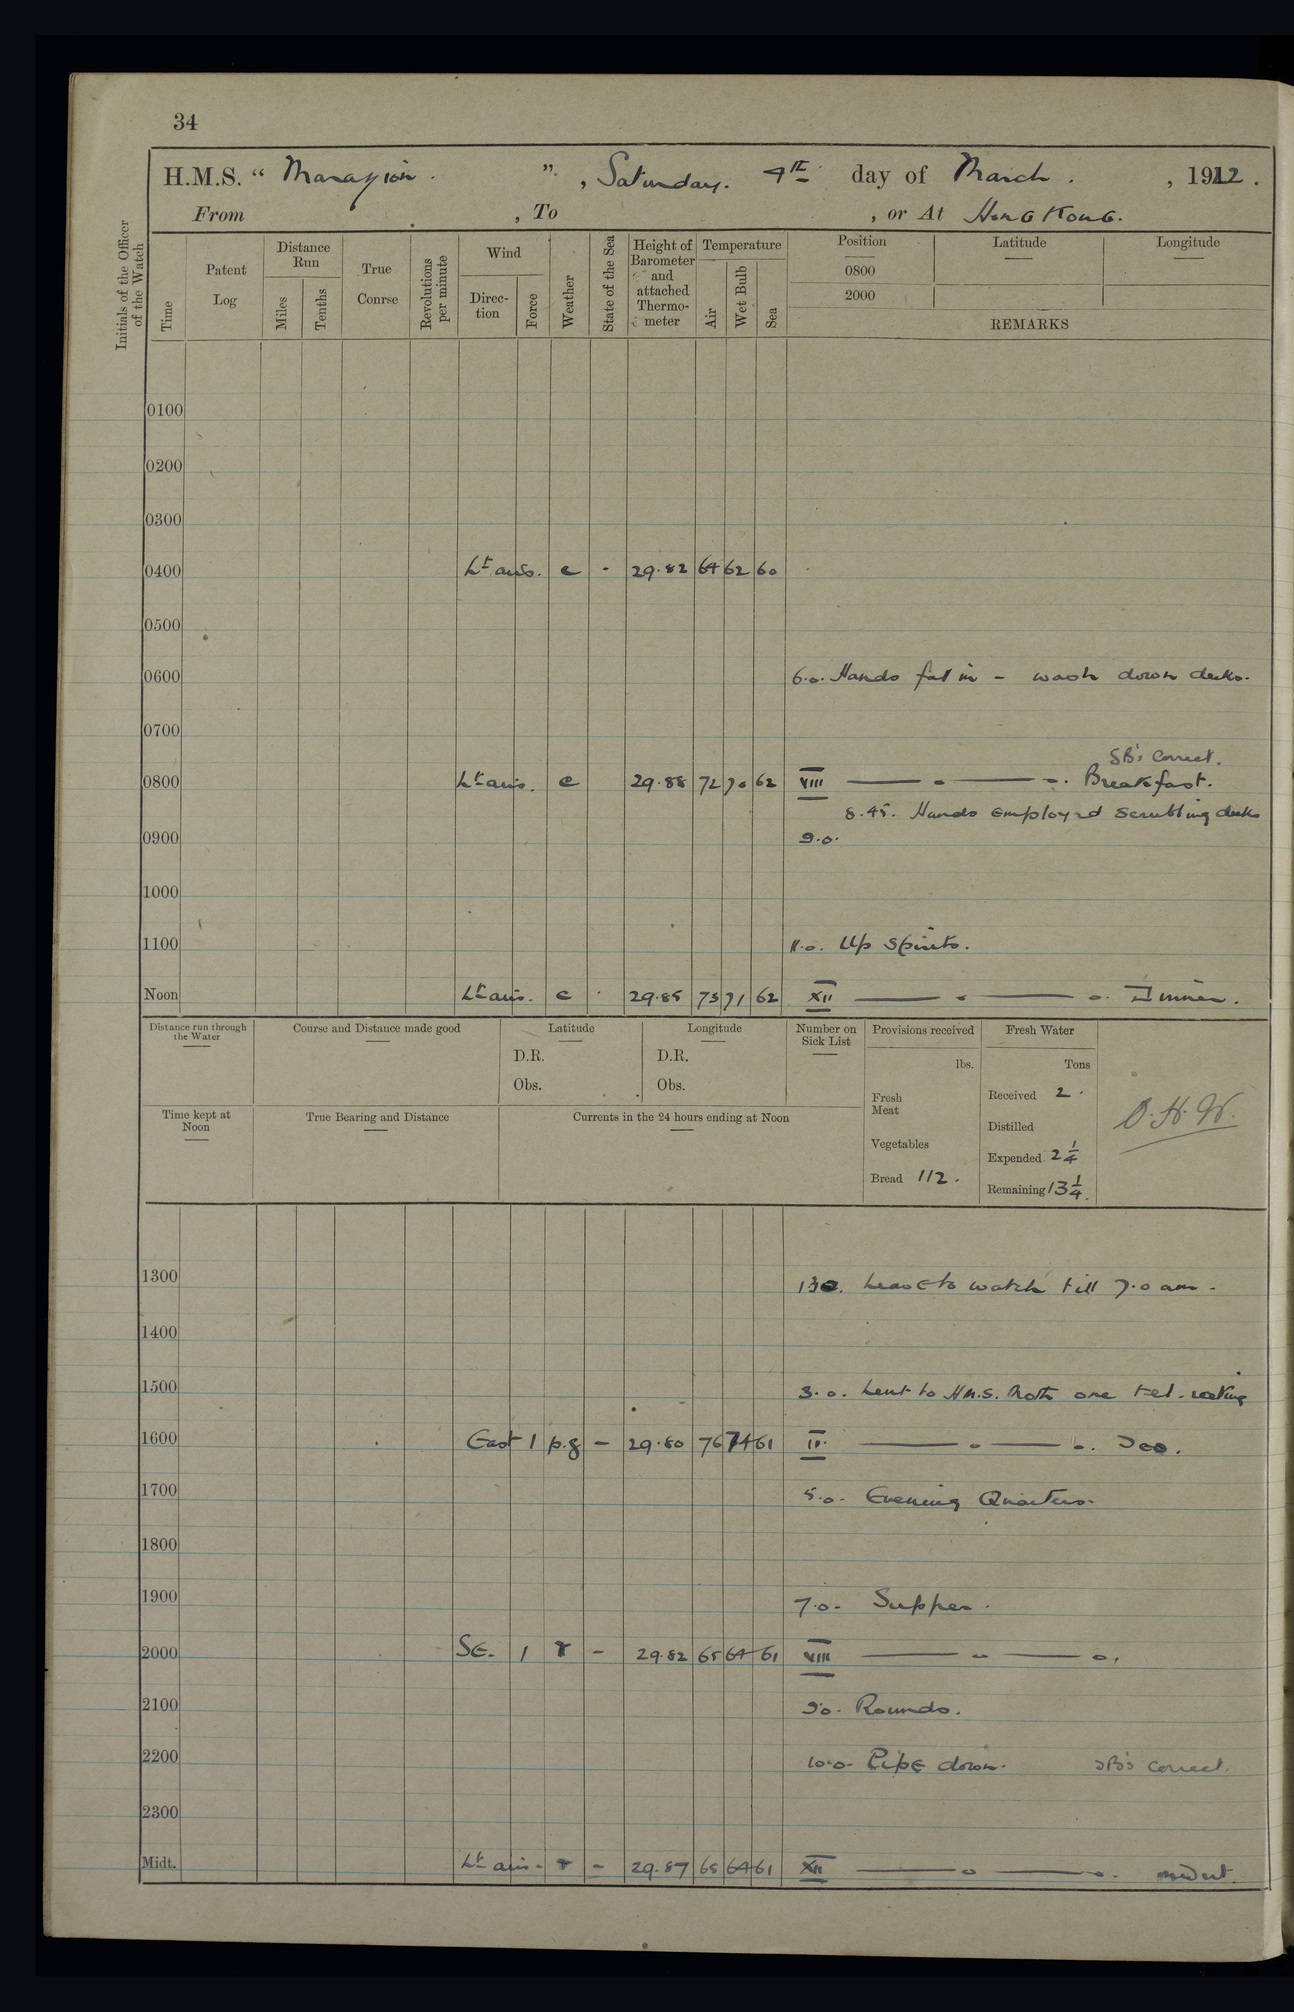 34
H.M.S. “ Marazion. ”, Saturday. 4TH day of March. , 1922.
From , To , or At Hong Kong.
Initials of the Officer of the Watch
Time
Patent Log
Distance Run
Miles
Tenths
True Course
Revolutions per minute
Wind
Direc-tion
Force
Weather
State of the Sea
Height of Barometer and attached Thermo-meter
Temperature
Air
Wet Bulb
Sea
Position
0800
2000
Latitude
Longitude
REMARKS
0100
0200
0300
0400 Lt airs. c - 29.82 64 62 60
0500
0600 6.0. Hands fall in - wash down decks.
0700
SB's Correct.
0800 Lt airs. c 29.88 72 70 62 VIII Breakfast.
8.45. Hands employed scrubbing decks
0900 9.0.
1000
1100 11.0. Up Spirits.
Noon Lt airs. c - 29.85 73 71 62 XII Dinner.
Distance run through the Water
Course and Distance made good
Latitude
D.R.
Obs.
Longitude
D.R.
Obs.
Number on Sick List
Provisions received
lbs.
Fresh Meat
Vegetables
Bread 112.
Fresh Water
Tons
Received 2.
Distilled
Expended 2 1/4
Remaining 13 1/4.
Time kept at Noon
True Bearing and Distance
Currents in the 24 hours ending at Noon
1300 130. Leave to watch till 7.0 am.
1400
1500 3.0. Lent to H.M.S. Moth one tel. rating
1600 East 1 p.g - 29.80 76 74 61 IV.
1700 5.0. Evening Quarters.
1800
1900 7.0. Supper.
2000 SE. 1 r - 29.82 65 64 61 VIII
2100 9.0. Rounds.
2200 10.0. Pipe down. SB's correct.
2300
Midt. Lt airs. r - 29.87 65 64 61 XII